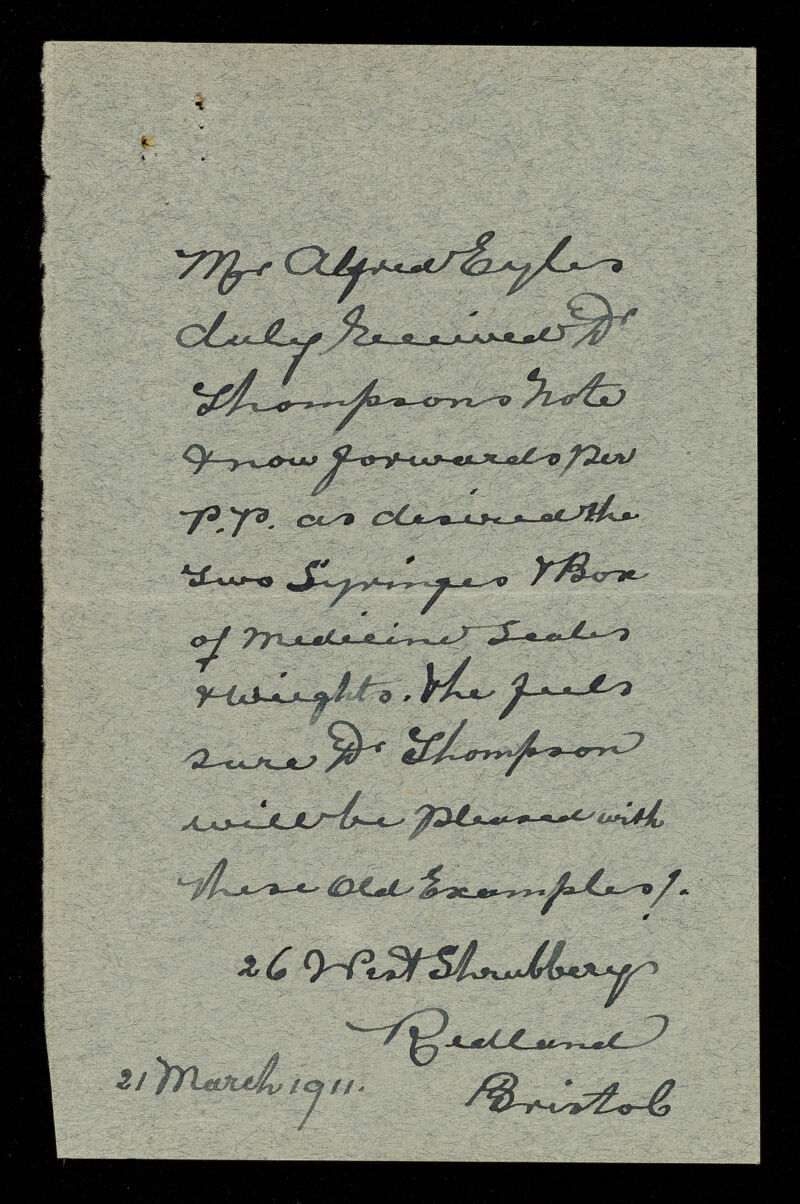 Mr Alfred Eyles
duly received Dr
Thompsons Note
& now forwards per
P.P. as desired the
Two Syringes & Box
of Medicine Scales
& Weights. & he feels
sure Dr Thompson
will be pleased with
these Old Examples!.
26 West Shrubbery
Redland
Bristol
21 March 1911.